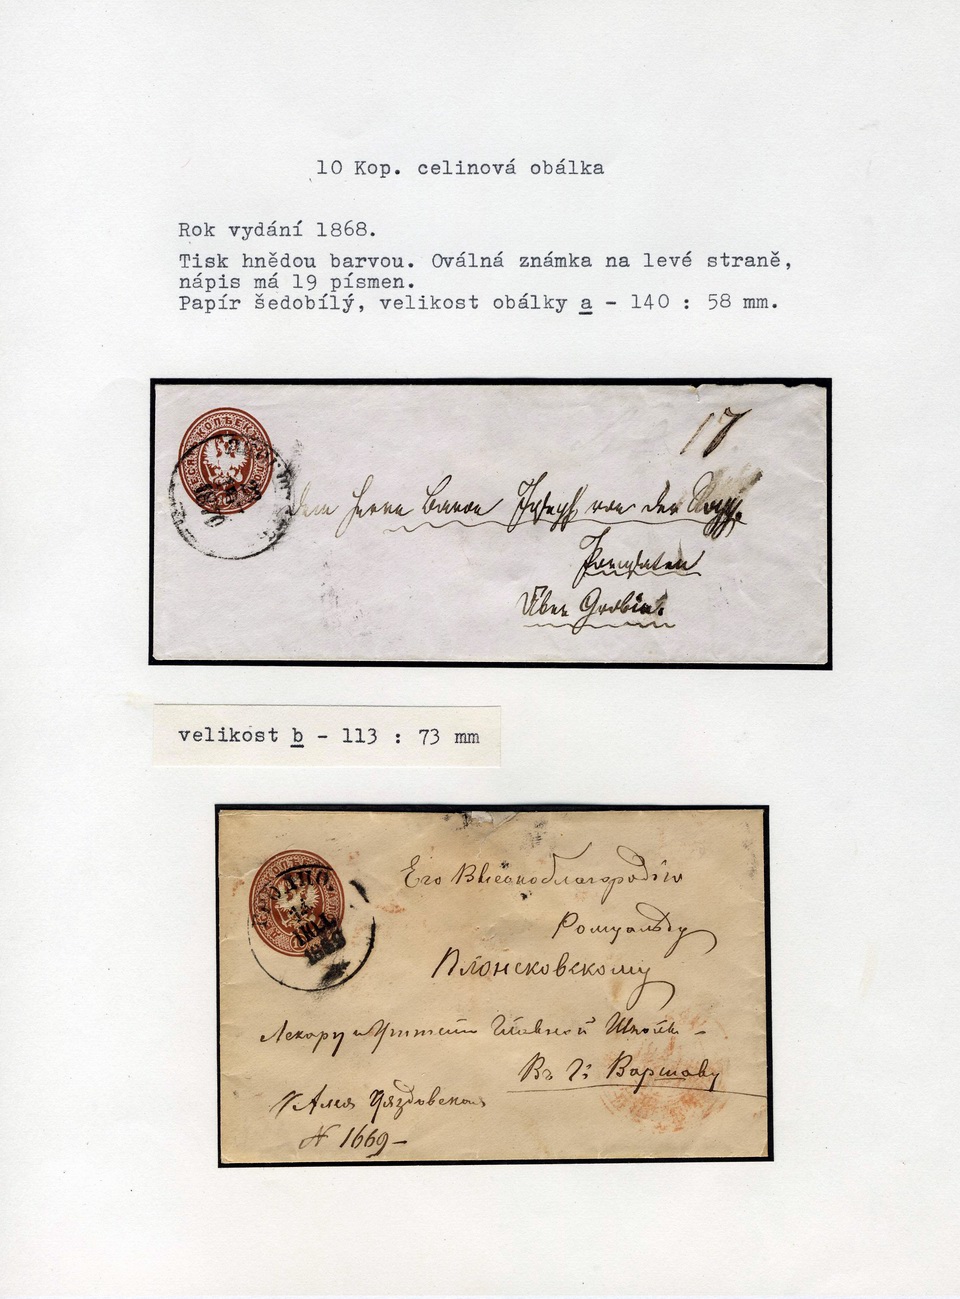 10 Kop. celinová obálka
Rok vydání 1868.
Tisk hnědou barvou. Oválná známka na levé straně,
nápis má 19 písmen.
Papír šedobílý, velikost obálky a - 140 : 58 mm.
17
Herrn Baron Joseph von der Ropp.
Über Grobin.
velikost b - 113 : 73 mm
Его Высокоблагородію
Ромуальду
Плонсковскому
Лекарю и Главной Школы -
Въ Г: Варшаву
Алея Уяздовская
N 1669 -